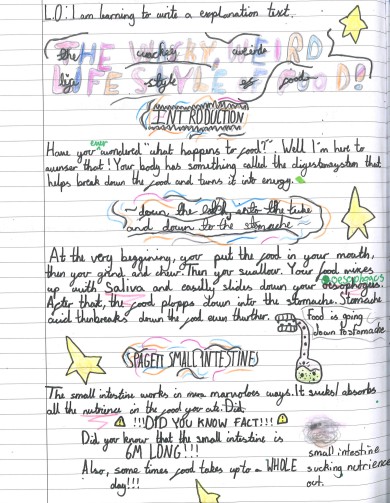 L.O: I am learning to write a explanation text.
THE WACKEY WEIRD
the wackey weirde
LIFESTYLE OF FOOD!
life style of food
INTRODUCTION
Have you ever wondered "what happens to food?". Well I'm here to
awnser that! Your body has something called the digestomsystem that
helps break down the food and turns it into energy.
down the into the tube
and down to the stomache
At the very beggining, you put the food in your mouth,
then you grind and chew. Then you swallow. Your food mixes
up with Saliva and easilly slides down your oesophogus. oesophagus
After that, the food plopps down into the stomache. Stomache
acid thenbreaks down the food even thurther.
Food is going
down to stomache
SPAGETI SMALL INTESTINES
The small intestine works in more marvoloes ways. It sucks/absorbs
all the nutrience in the food your ate. Did
!!!DID YOU KNOW FACT!!!
Did you know that the small intestine is
6M LONG!!!
Also, some times food takes up to a WHOLE
day!!!
small intestine
sucking nutrience
out.